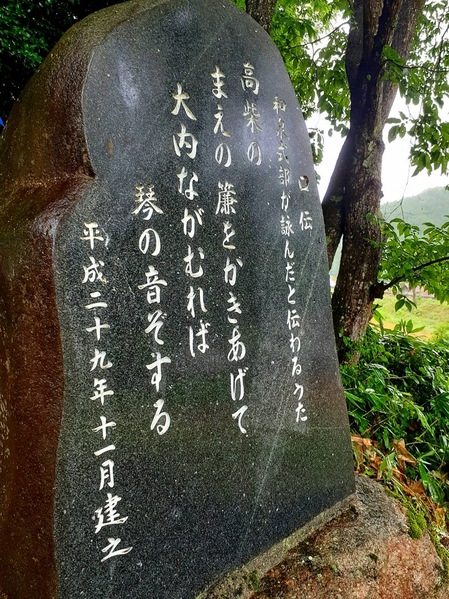 口伝
和泉式部が詠んだと伝わるうた
高柴の
まえの簾をかきあげて
大内ながむれば
琴の音ぞする
平成二十九年十一月建之